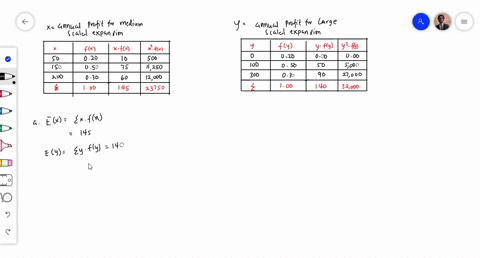 x= annual profit for medium
scaled expansion
x f(x) x·f(x) x²·f(x)
50 0.20 10 500
150 0.50 75 11,250
200 0.30 60 12,000
Σ 1.00 145 23750
y = annual profit for large
scaled expansion
y f(y) y·f(y) y²·f(y)
0 0.20 0.00 0.00
100 0.50 50 5,000
300 0.30 90 27,000
Σ 1.00 140 32,000
a. E(x) = Σ x.f(x)
= 145
E(y) = Σ y.f(y) = 140